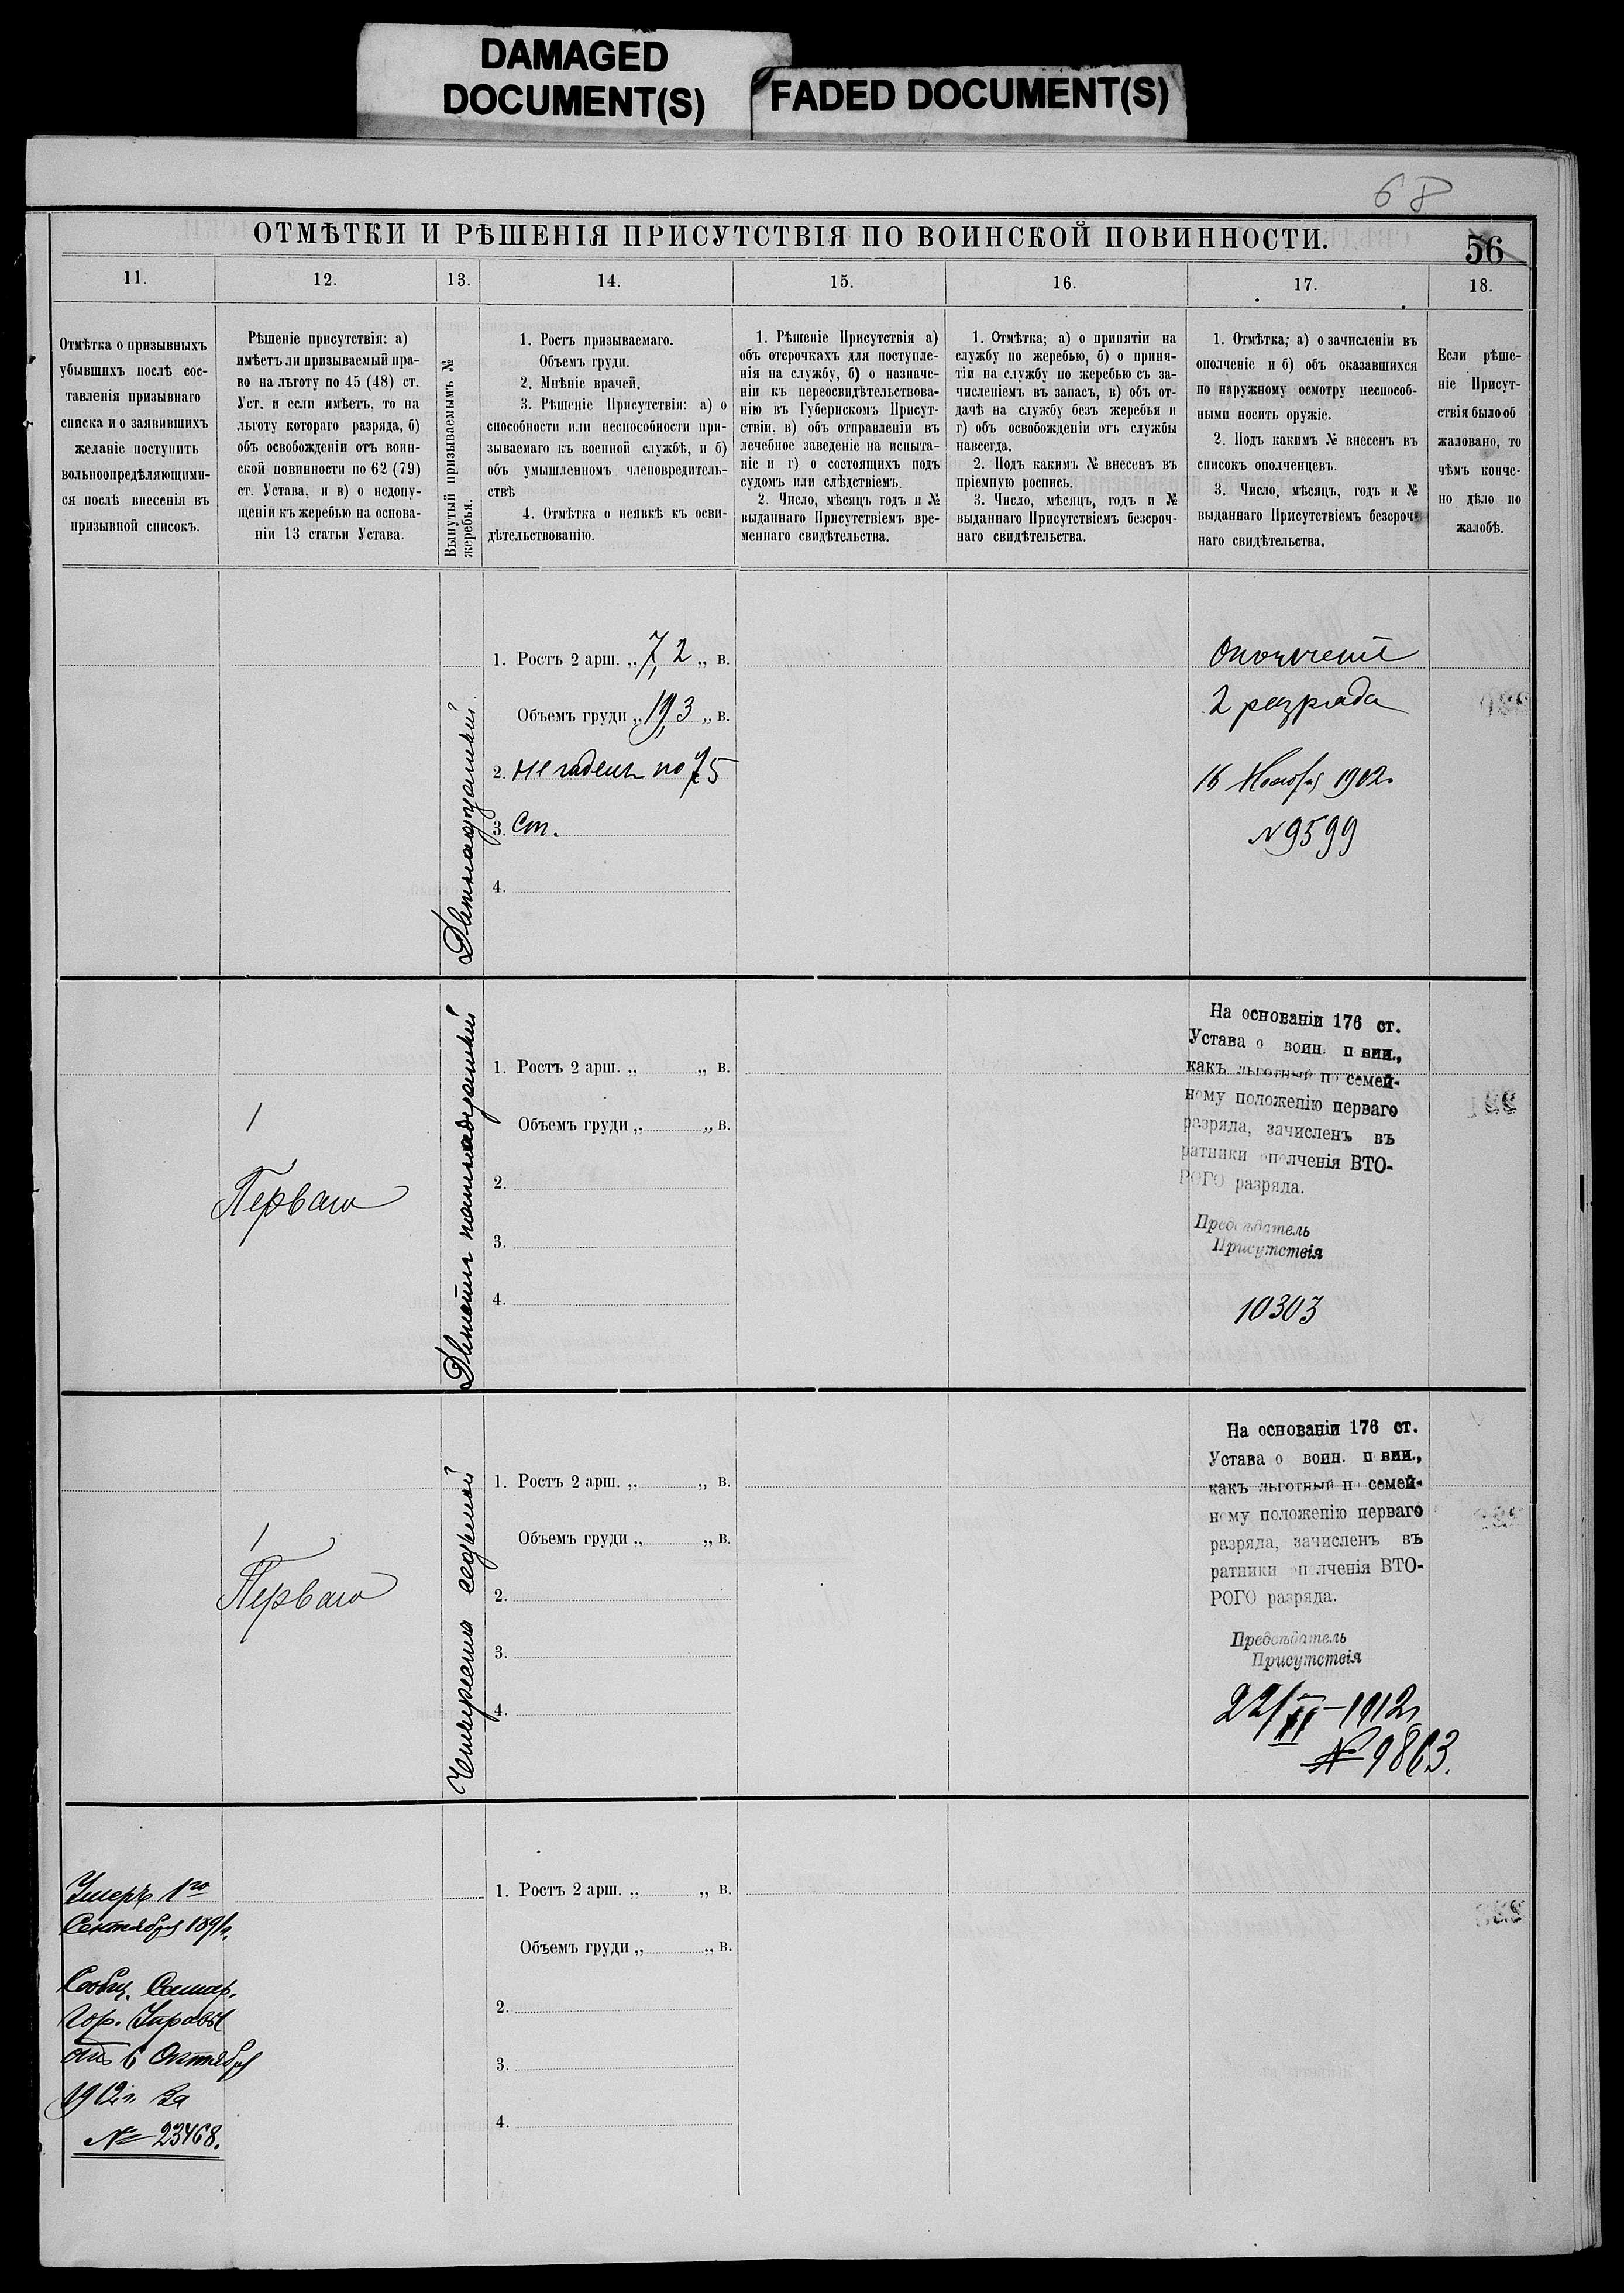 DAMAGED
DOCUMENT(S)
FADED DOCUMENT(S)
68
ОТМѢТКИ И РѢШЕНІЯ ПРИСУТСТВІЯ ПО ВОИНСКОЙ ПОВИННОСТИ.
56
11.
12.
13.
14.
15.
16.
17.
18.
Отмѣтка о призывныхъ
убывшихъ послѣ сос-
тавленія призывнаго
списка и о заявившихъ
желаніе поступить
вольноопредѣляющими-
ся послѣ внесенія въ
призывной списокъ.
Рѣшеніе присутствія: а)
имѣетъ ли призываемый пра-
во на льготу по 45 (48) ст.
Уст. и если имѣетъ, то на
льготу котораго разряда, б)
объ освобожденіи отъ воин-
ской повинности по 62 (79)
ст. Устава, и в) о недопу-
щеніи къ жеребью на основа-
ніи 13 статьи Устава.
Вынутый призываемымъ №
жеребья.
1. Ростъ призываемаго.
Объемъ груди.
2. Мнѣніе врачей.
3. Рѣшеніе Присутствія: а) о
способности или неспособности при-
зываемаго къ военной службѣ, и б)
объ умышленномъ членовредитель-
ствѣ
4. Отмѣтка о неявкѣ къ осви-
дѣтельствованію.
1. Рѣшеніе Присутствія а)
объ отсрочкахъ для поступле-
нія на службу, б) о назначе-
ніи къ переосвидѣтельствова-
нію въ Губернскомъ Присут-
ствіи, в) объ отправленіи въ
лечебное заведеніе на испыта-
ніе и г) о состоящихъ подъ
судомъ или слѣдствіемъ.
2. Число, мѣсяцъ годъ и №
выданнаго Присутствіемъ вре-
меннаго свидѣтельства.
1. Отмѣтка; а) о принятіи на
службу по жеребью, б) о приня-
тіи на службу по жеребью съ за-
численіемъ въ запасъ, в) объ от-
дачѣ на службу безъ жеребья и
г) объ освобожденіи отъ службы
навсегда.
2. Подъ какимъ № внесенъ въ
пріемную роспись.
3. Число, мѣсяцъ, годъ и №
выданнаго Присутствіемъ безсроч-
наго свидѣтельства.
1. Отмѣтка; а) о зачисленіи въ
ополченіе и б) объ оказавшихся
по наружному осмотру неспособ-
ными носить оружіе.
2. Подъ какимъ № внесенъ въ
списокъ ополченцевъ.
3. Число, мѣсяцъ, годъ и №
выданнаго Присутствіемъ безсроч-
наго свидѣтельства.
Если рѣше-
ніе Присут-
ствія было об
жаловано, то
чѣмъ конче-
но дѣло по
жалобѣ.
1. Ростъ 2 арш. „ 7,2 „ в.
Объемъ груди „ 19,3 „ в.
2. не годенъ по 75
3. ст.
4.
Ополченіе
2 разряда
16 Ноября 1912
№ 9599
1
Перваго
Двѣсти пятнадцатый
1. Ростъ 2 арш. „ „ в.
Объемъ груди „ „ в.
2.
3.
4.
На основаніи 176 ст.
Устава о воин. п вин.,
какъ льготный п семей-
ному положенію перваго
разряда, зачисленъ въ
ратники ополченія ВТО-
РОГО разряда.
Предсѣдатель
Присутствія
10303
1
Перваго
Четыреста седьмой
1. Ростъ 2 арш. „ „ в.
Объемъ груди „ „ в.
2.
3.
4.
На основаніи 176 ст.
Устава о воин. п вин.,
какъ льготный п семей-
ному положенію перваго
разряда, зачисленъ въ
ратники ополченія ВТО-
РОГО разряда.
Предсѣдатель
Присутствія
22/XI-1912 г
№ 9863.
Умеръ 1го
Сентября 1891 г.
Сообщ. Самар.
Гор. Управы
отъ 6 Октября
1912 г. за
№ 23468.
1. Ростъ 2 арш. „ „ в.
Объемъ груди „ „ в.
2.
3.
4.